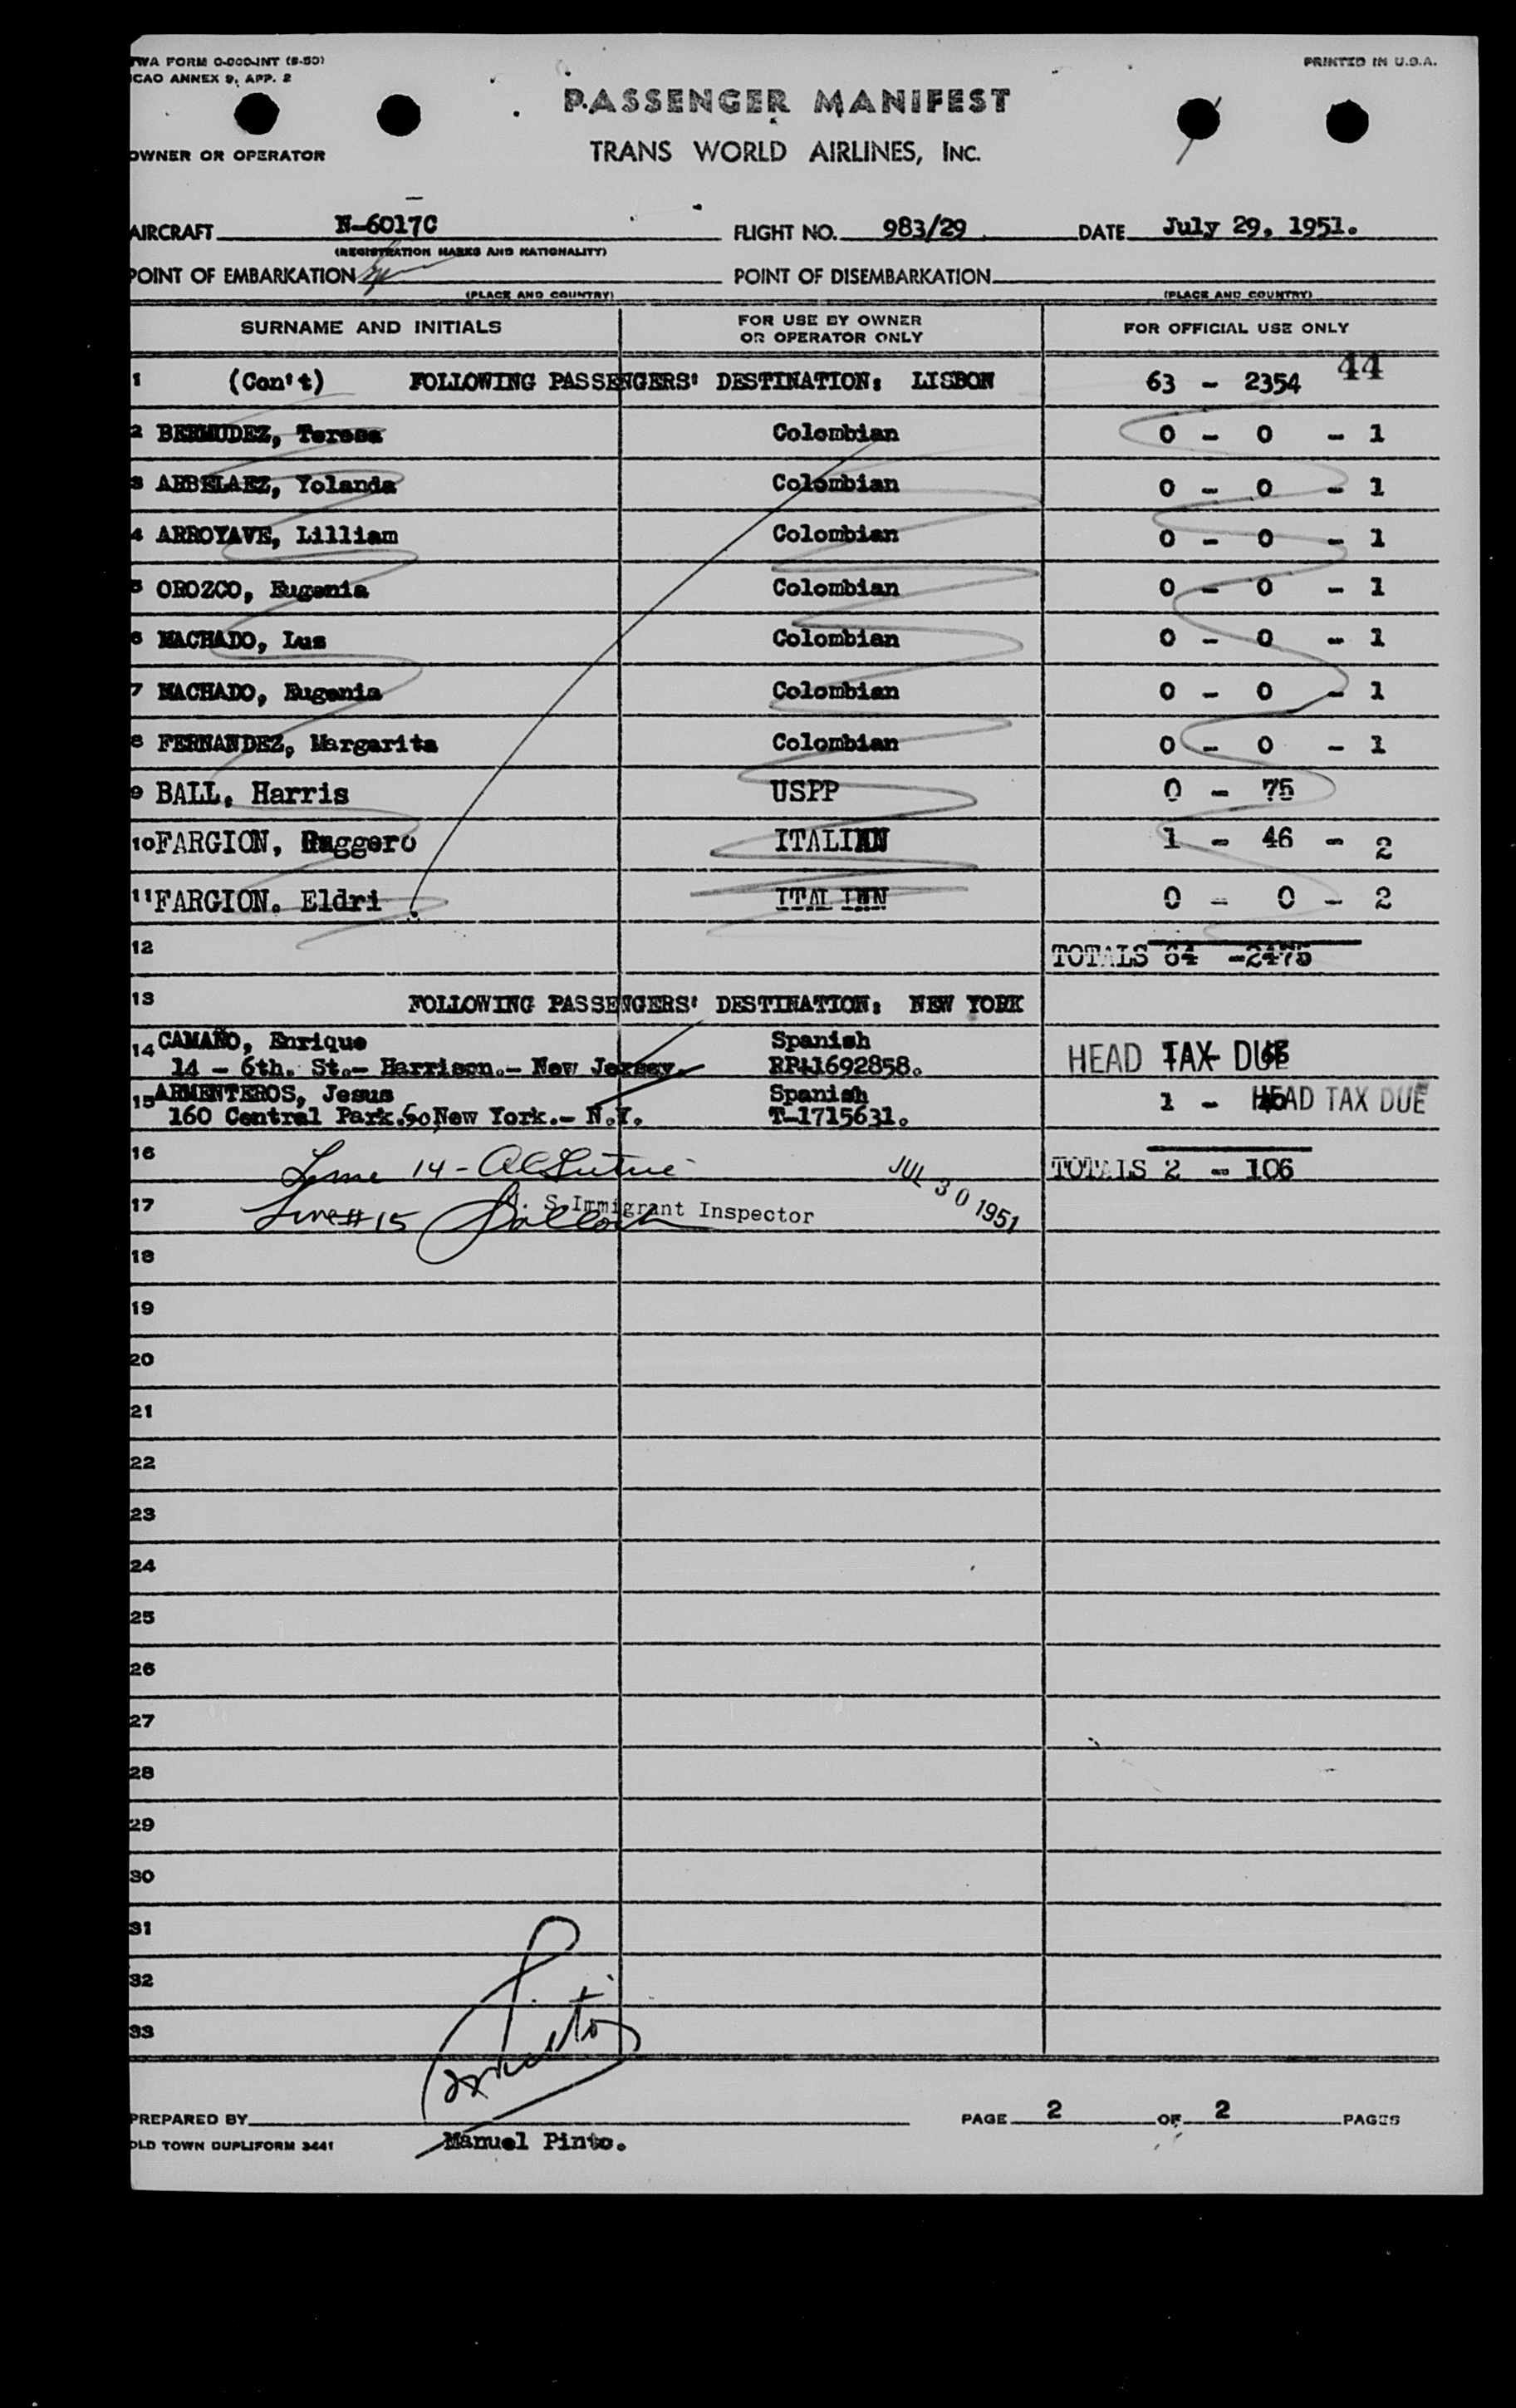 TWA FORM O-000-INT (9-50)
PRINTED IN U.S.A.
ICAO ANNEX 9, APP. 2
PASSENGER MANIFEST
OWNER OR OPERATOR
TRANS WORLD AIRLINES, INC.
AIRCRAFT N-6017C FLIGHT NO. 983/29 DATE July 29, 1951.
(REGISTRATION MARKS AND NATIONALITY)
POINT OF EMBARKATION POINT OF DISEMBARKATION
(PLACE AND COUNTRY) (PLACE AND COUNTRY)
SURNAME AND INITIALS FOR USE BY OWNER OR OPERATOR ONLY FOR OFFICIAL USE ONLY
44
1 (Con't) FOLLOWING PASSENGERS' DESTINATION: LISBON 63 - 2354
2 BERMUDEZ, Teresa Colombian 0 - 0 - 1
3 ARBELAEZ, Yolanda Colombian 0 - 0 - 1
4 ARROYAVE, Lilliam Colombian 0 - 0 - 1
5 OROZCO, Eugenia Colombian 0 - 0 - 1
6 MACHADO, Luz Colombian 0 - 0 - 1
7 MACHADO, Eugenia Colombian 0 - 0 - 1
8 FERNANDEZ, Margarita Colombian 0 - 0 - 1
9 BALL, Harris USPP 0 - 75
10 FARGION, Ruggero ITALIAN 1 - 46 - 2
11 FARGION. Eldri ITALIAN 0 - 0 - 2
12 TOTALS 64 - 2475
13 FOLLOWING PASSENGERS' DESTINATION: NEW YORK
14 CAMAÑO, Enrique Spanish HEAD TAX DUE
14 - 6th. St.- Harrison.- New Jersey. 1692858.
15 ARMENTEROS, Jesus Spanish 1 - HEAD TAX DUE
160 Central Park.So New York.- N.Y. T-1715631.
16 Line 14 - JUL 30 1951 TOTALS 2 - 106
17 Line # 15 S. Immigrant Inspector
18
19
20
21
22
23
24
25
26
27
28
29
30
31
32
33
PREPARED BY PAGE 2 OF 2 PAGES
OLD TOWN DUPLIFORM 3441 Manuel Pinto.